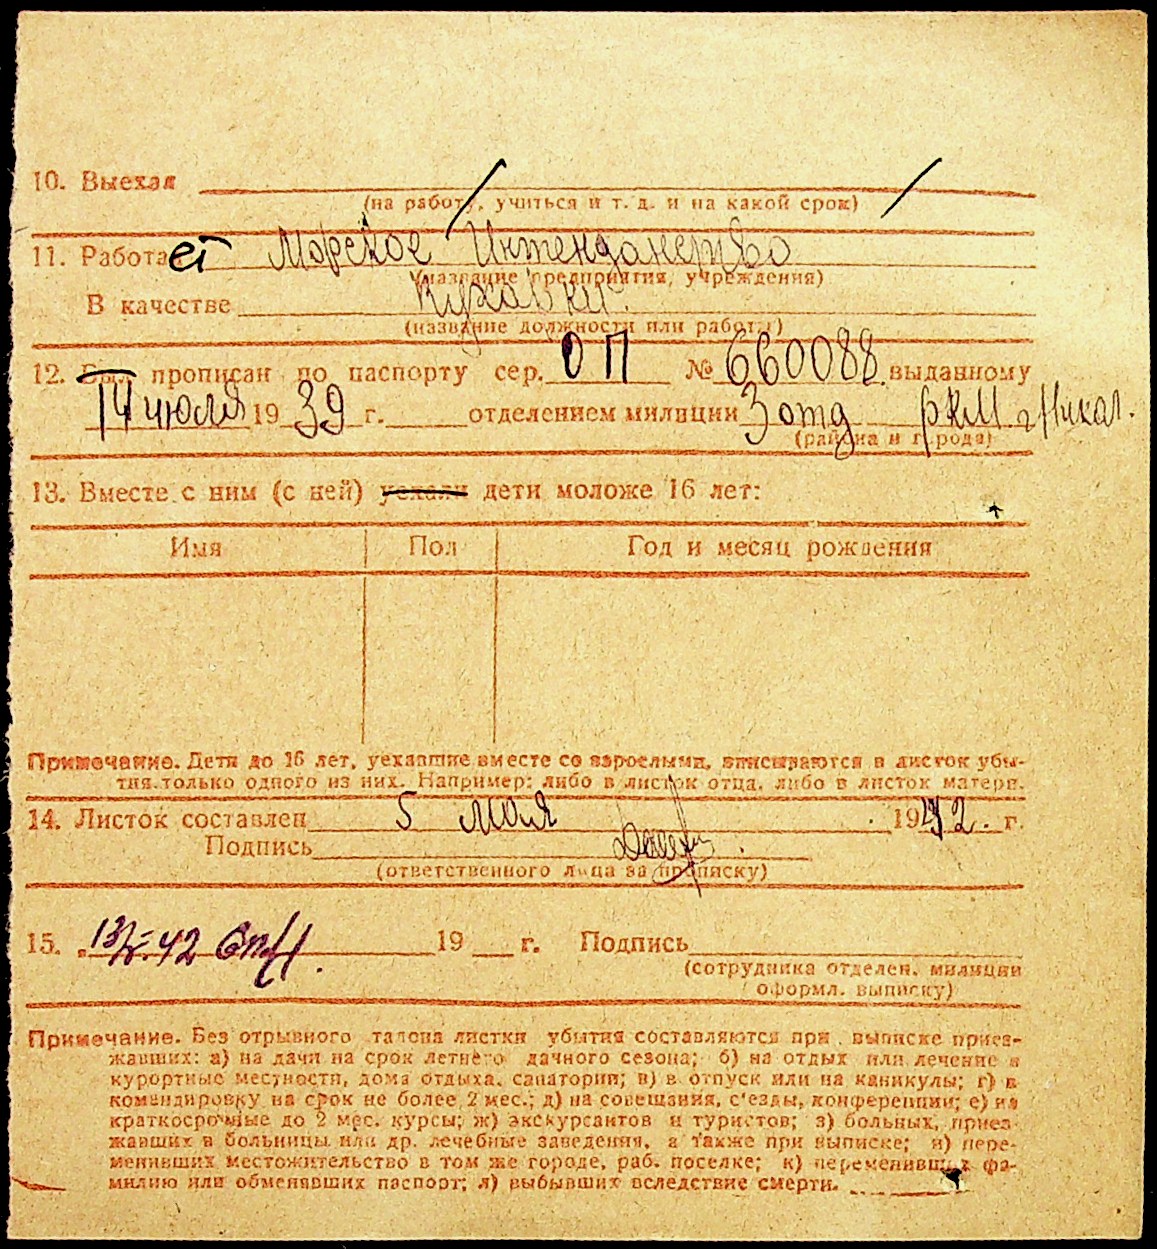 10. Выехал
(на работу, учиться и т. д. и на какой срок)
11. Работает Морское Интендантство
(название предприятия, учреждения)
В качестве
(название должности или работы)
12. Был прописан по паспорту сер. ОП № 660088 выданному
14 июля 1939 г. отделением милиции 3 отд РКМ г Никол.
(района и города)
13. Вместе с ним (с ней) уехали дети моложе 16 лет:
Имя Пол Год и месяц рождения
Примечание. Дети до 16 лет, уехавшие вместе со взрослыми, вписываются в листок убы-
тия только одного из них. Например: либо в листок отца, либо в листок матери.
14. Листок составлен 5 мая 1942. г.
Подпись
(ответственного лица за прописку)
15. 13/V-42 19 г. Подпись
(сотрудника отделен. милиции
оформл. выписку)
Примечание. Без отрывного талона листки убытия составляются при выписке приез-
жавших: а) на дачи на срок летнего дачного сезона; б) на отдых или лечение в
курортные местности, дома отдыха, санатории; в) в отпуск или на каникулы; г) в
командировку на срок не более 2 мес.; д) на совещания, с'езды, конференции; е) на
краткосрочные до 2 мес. курсы; ж) экскурсантов и туристов; з) больных, приез-
жавших в больницы или др. лечебные заведения, а также при выписке; и) пере-
менивших местожительство в том же городе, раб. поселке; к) переменивших фа-
милию или обменявших паспорт; л) выбывших вследствие смерти.